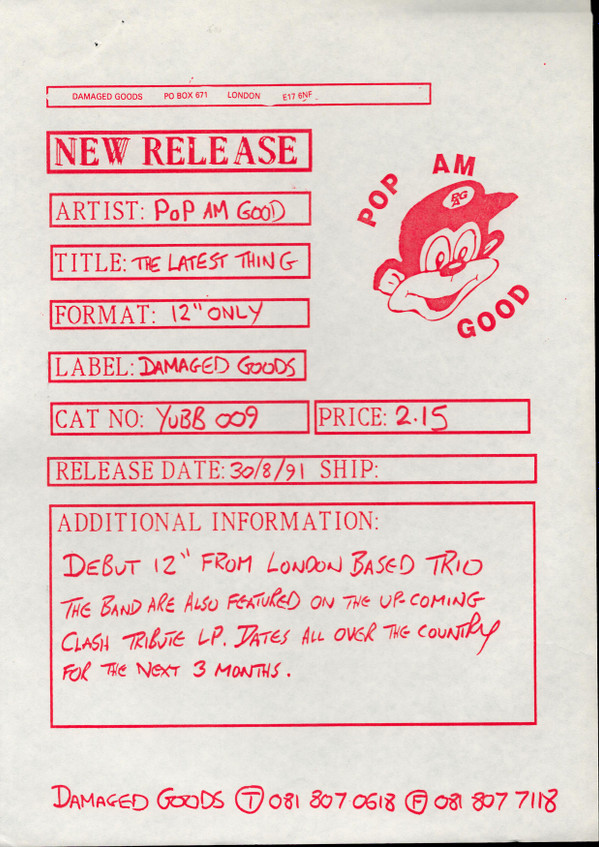 DAMAGED GOODS PO BOX 671 LONDON E17 6NF
NEW RELEASE
POP AM
GOOD
PGA
ARTIST: POP AM GOOD
TITLE: THE LATEST THING
FORMAT: 12" ONLY
LABEL: DAMAGED GOODS
CAT NO: YUBB 009 PRICE: 2.15
RELEASE DATE: 30/8/91 SHIP:
ADDITIONAL INFORMATION:
DEBUT 12" FROM LONDON BASED TRIO
THE BAND ARE ALSO FEATURED ON THE UP-COMING
CLASH TRIBUTE LP. DATES ALL OVER THE COUNTRY
FOR THE NEXT 3 MONTHS.
DAMAGED GOODS T 081 807 0618 F 081 807 7118